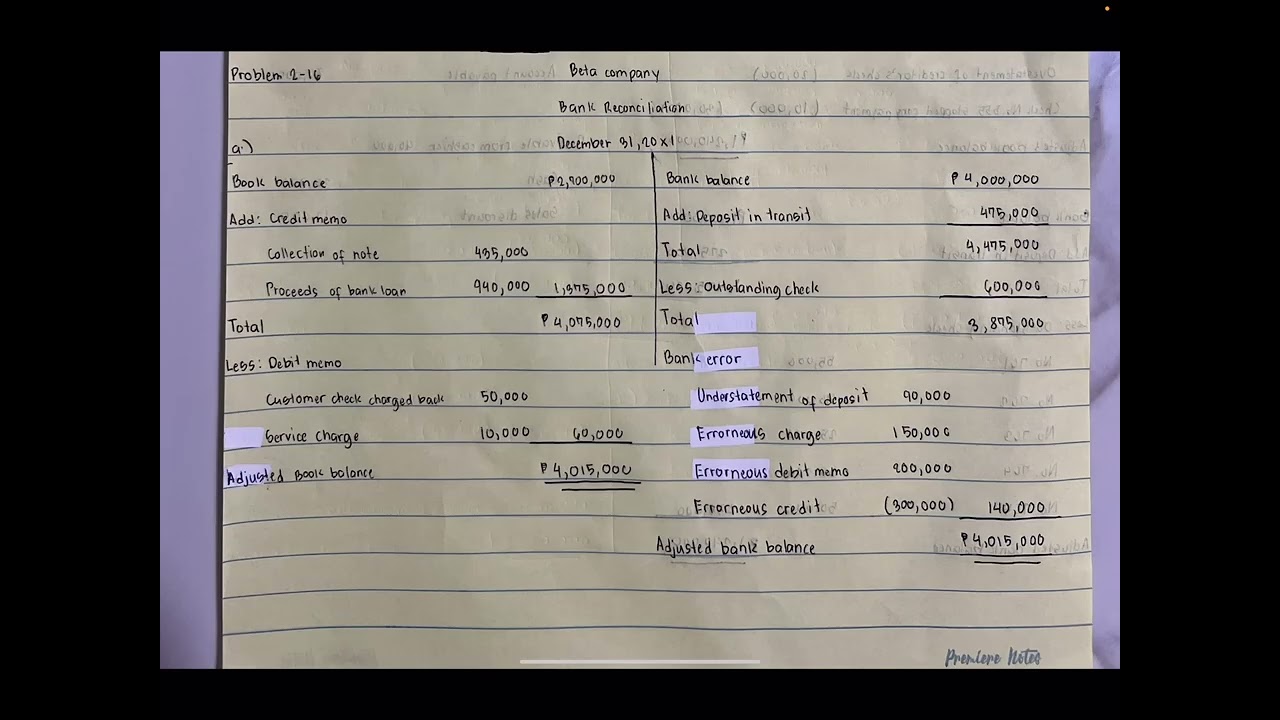 Problem 2-16
Beta company
Bank Reconciliation
a.)
December 31, 20x1
Book balance ₱2,700,000
Add: Credit memo
Collection of note 435,000
Proceeds of bank loan 940,000 1,375,000
Total ₱4,075,000
Less: Debit memo
Customer check charged back 50,000
Service charge 10,000 60,000
Adjusted Book balance ₱4,015,000
Bank balance ₱4,000,000
Add: Deposit in transit 475,000
Total 4,475,000
Less: Outstanding check 600,000
Total 3,875,000
Bank error
Understatement of deposit 90,000
Errorneous charge 150,000
Errorneous debit memo 200,000
Errorneous credit (300,000) 140,000
Adjusted bank balance ₱4,015,000
Premiere Notes